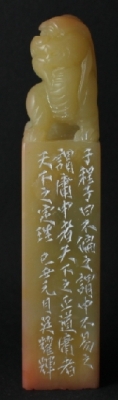 子程子曰不偏之謂中不易之
謂庸中者天下之正道庸者
天下之定理 元月吳耀輝